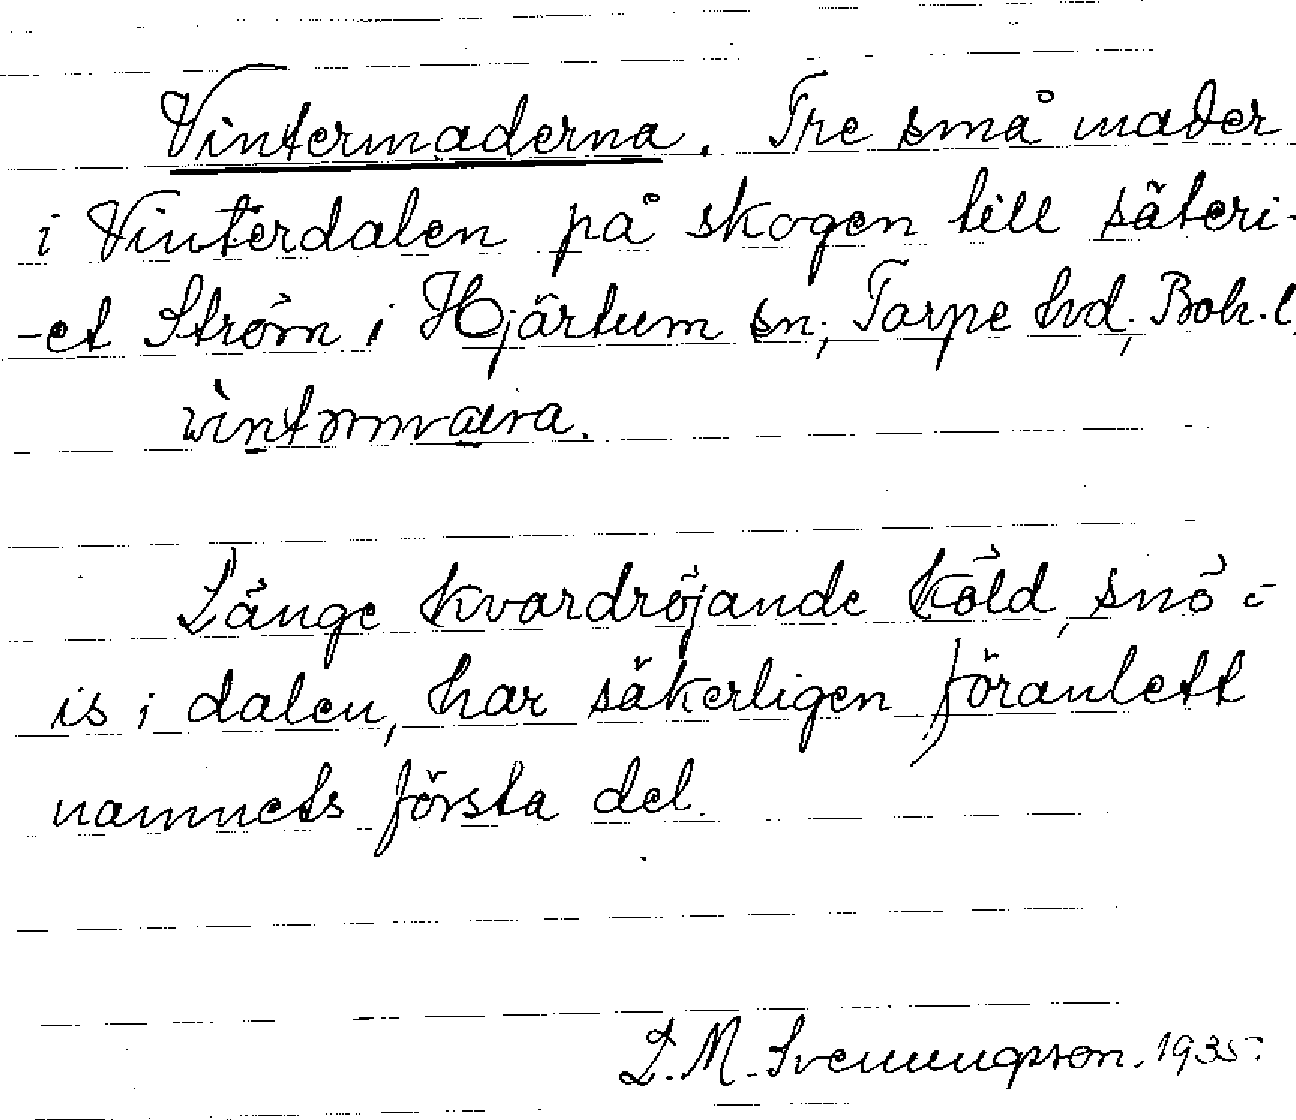 Vintermaderna. Tre små mader
i Vinterdalen på skogen till säteri-
-et Ström i Hjärtum sn, Torpe hd, Boh. l.
Länge kvardröjande köld, snö-
is i dalen, har säkerligen föranlett
namnets första del.
L. M. Svenungsson. 1935.